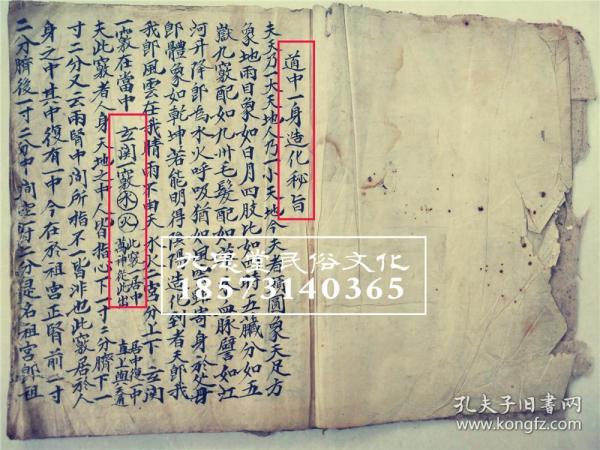 道中一身造化秘旨
夫天乃一大天地人乃一小天地今夫者圓象天足方
象地兩目象如日月四肢比如四時五臟分如五
嶽九竅配如九州毛髮配如血脉譬如江
河升降即為水火呼吸猶如風雲寄身於父母
即體象如乾坤若能明得陰陽造化到者天即我
我即風雲在我晴雨不由天水火二宮分上下玄関
一竅在當中玄関竅水火此竅一居中萬神從此出居中復中直上與天通
夫此竅者人身天地之中人皆指心下一寸二分臍下一
寸二分又云兩腎中間所指不一皆非也此竅居於人
身之中其中復有一中今在於祖宮正腎前一寸
二分臍後一寸二分中間空府二分是名祖宮即祖
大魁堂民俗文化
18573140365
孔夫子旧書网
www.kongfz.com